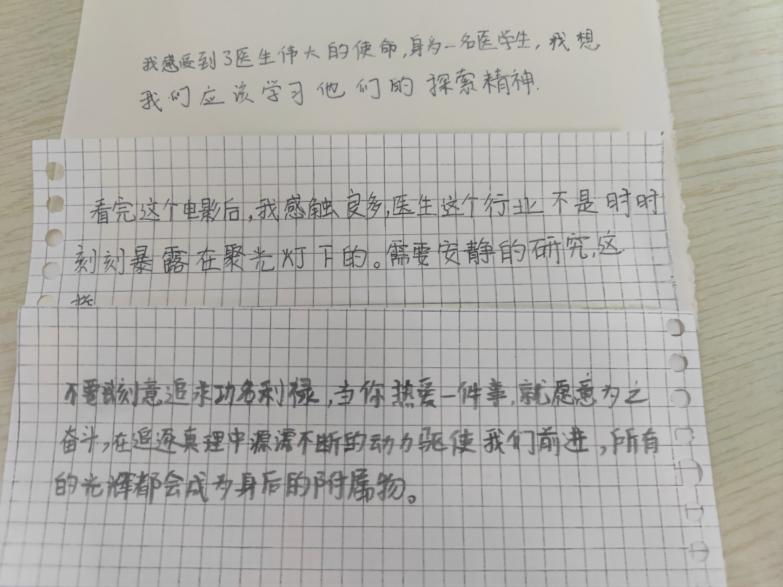 我感受到了医生伟大的使命,身为一名医学生,我想
我们应该学习他们的探索精神.
看完这个电影后,我感触良多,医生这个行业不是时时
刻刻暴露在聚光灯下的。需要安静的研究,这
不要刻意追求功名利禄,当你热爱一件事,就愿意为之
奋斗,在追逐真理中源源不断的动力驱使我们前进,所有
的光辉都会成为身后的附属物。